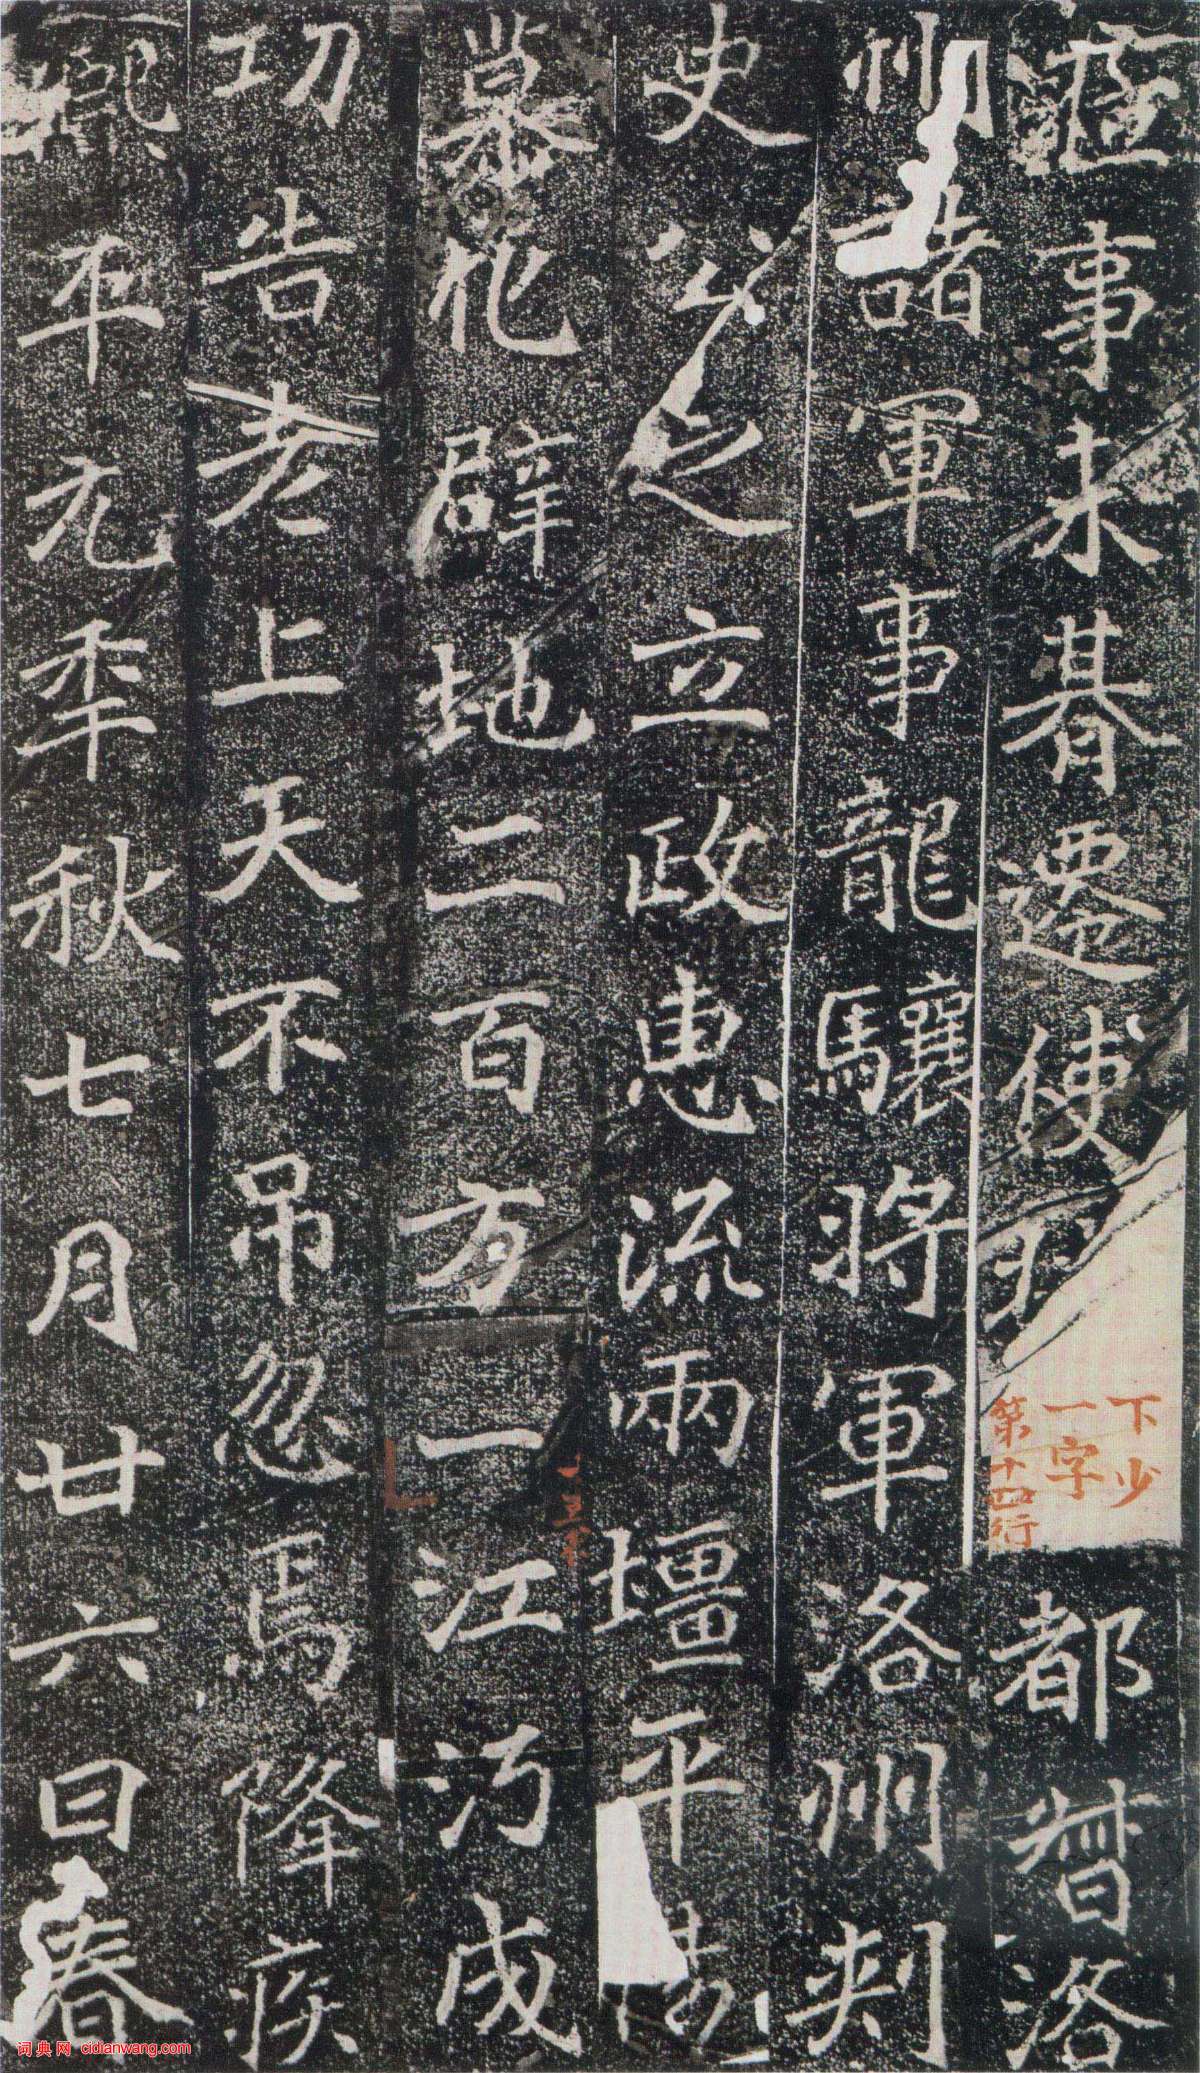 事未朞遷使持都督洛
下少
一字
第十四行
州諸軍事龍驤將軍洛州刾
史公之立政惠流兩壃平
慕化辟地二百方一江沔成
功告老上天不吊忽焉降疾
熙平元年秋七月廿六日春
词典网 cidianwang.com